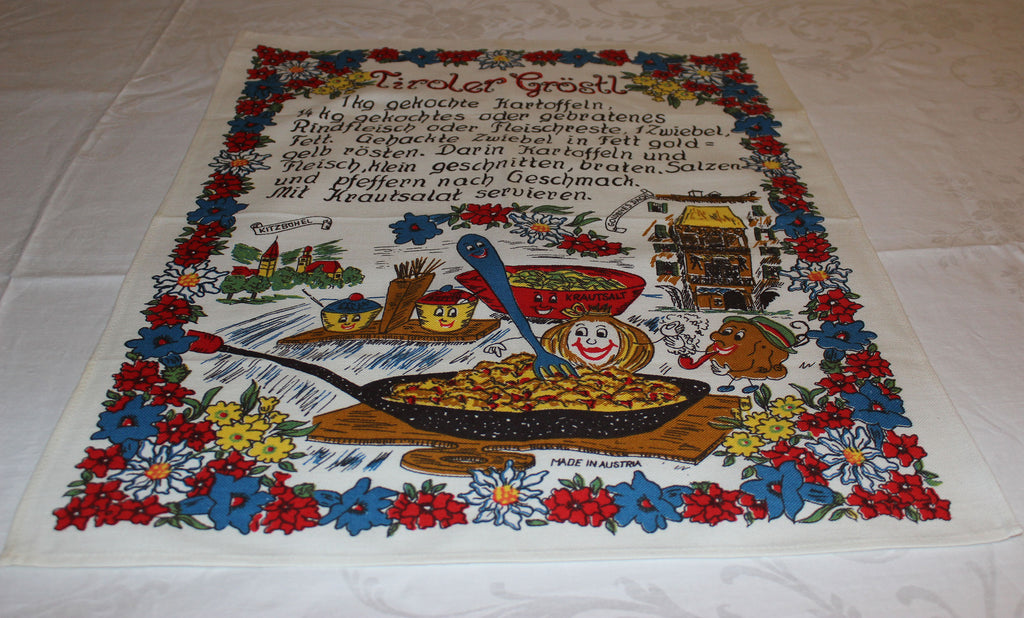 Tiroler Gröstl
1 kg gekochte Kartoffeln,
¼ kg gekochtes oder gebratenes
Rindfleisch oder Fleischreste, 1 Zwiebel,
Fett. Gehackte Zwiebel in Fett gold=
gelb rösten. Darin Kartoffeln und
Fleisch, klein geschnitten, braten. Salzen
und pfeffern nach Geschmack.
Mit Krautsalat servieren.
KITZBÜHEL
KRAUTSALAT
MADE IN AUSTRIA